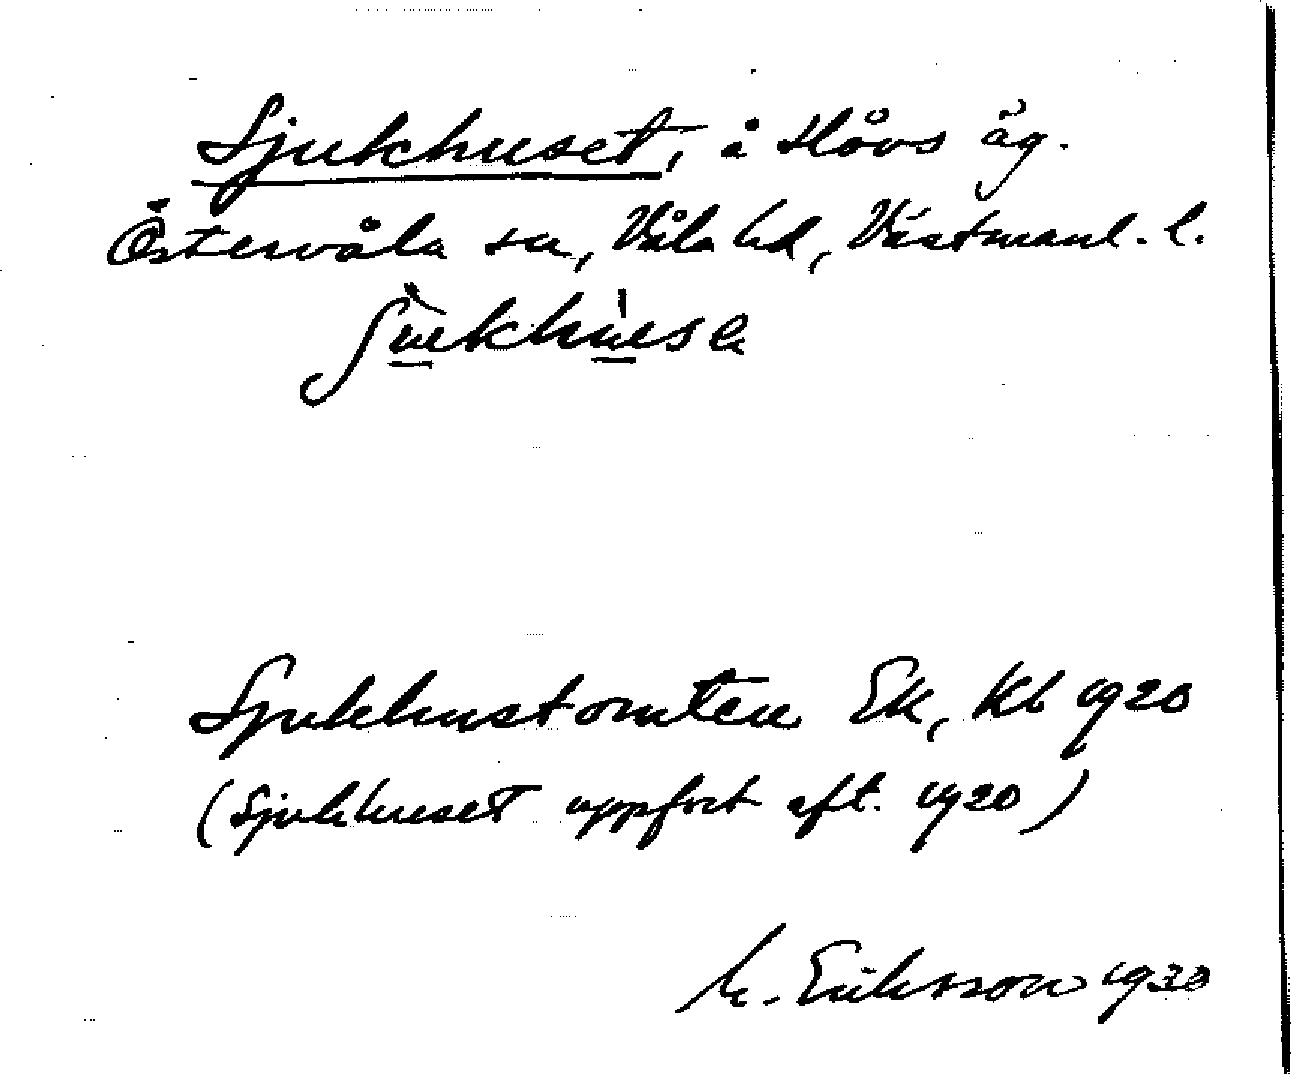 Sjukhuset, å Hovs äg.
Östervåla sn, Våla hd, Västmanl. l.
ʃu̲khu̲sɛ
Sjukhustomten Ek, Kb 1920
(Sjukhuset uppfört eft. 1920)
M. Eriksson 1930